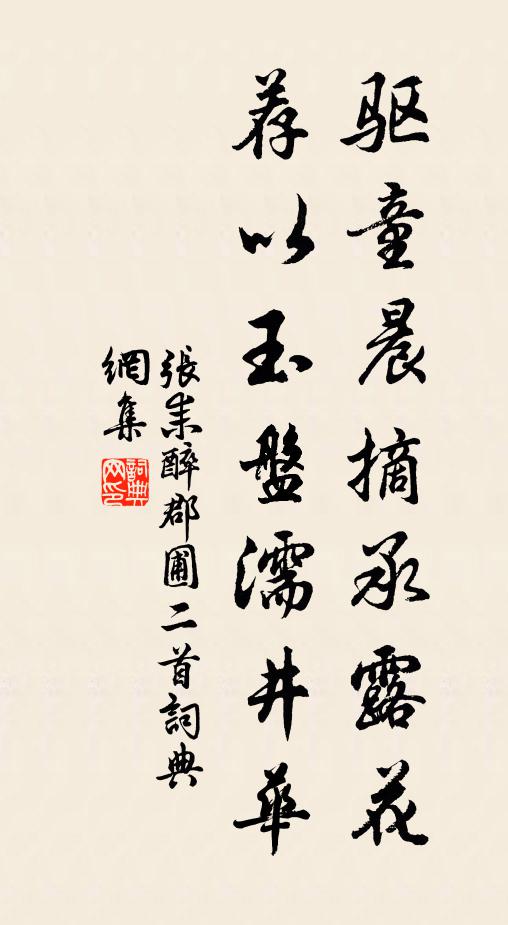 驱童晨摘承露花
荐以玉盤濡井華
張耒醉郡圃二首詞典
網集
詞典
网印